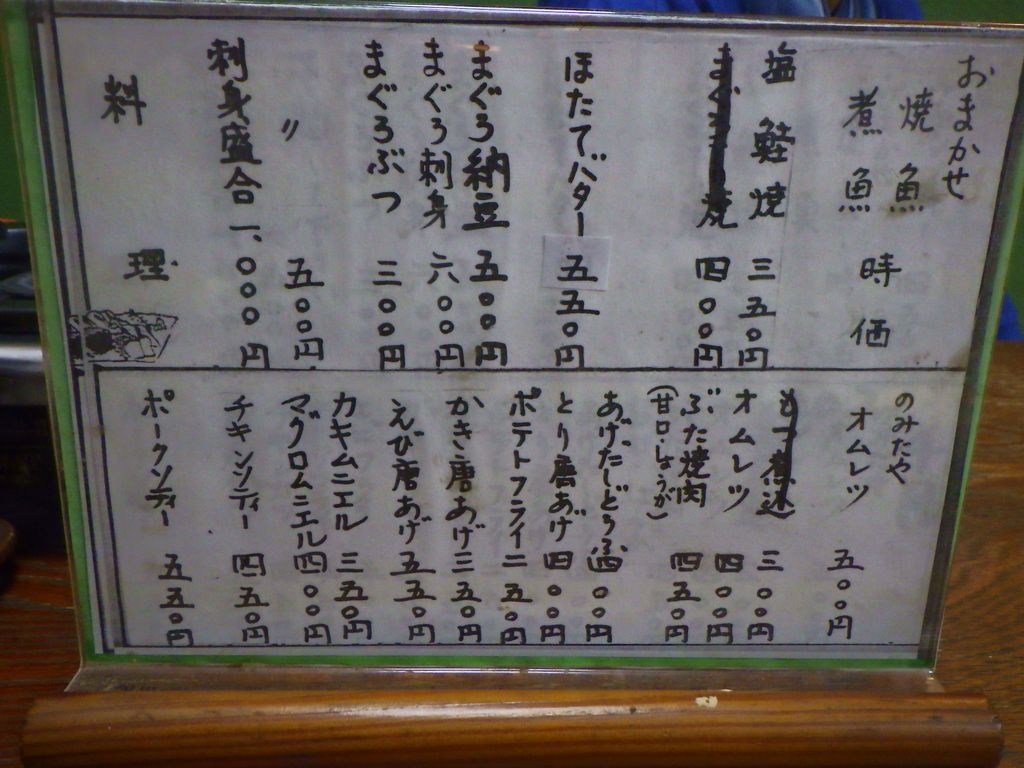 おまかせ
焼魚
煮魚
時価
塩鮭焼 三五〇円
四〇〇円
ほたてバター 五五〇円
まぐろ納豆 五〇〇円
まぐろ刺身 六〇〇円
まぐろぶつ 三〇〇円
〃 五〇〇円
刺身盛合 一、〇〇〇円
料理
のみたや
オムレツ 五〇〇円
もつ煮込 三〇〇円
オムレツ 四〇〇円
ぶた焼肉 四五〇円
(甘口・しょうが)
あげだしどうふ 四〇〇円
とり唐あげ 四〇〇円
ポテトフライ 二五〇円
かき唐あげ 三五〇円
えび唐あげ 五五〇円
カキムニエル 三五〇円
マグロムニエル 四〇〇円
チキンソティー 四五〇円
ポークソティー 五五〇円